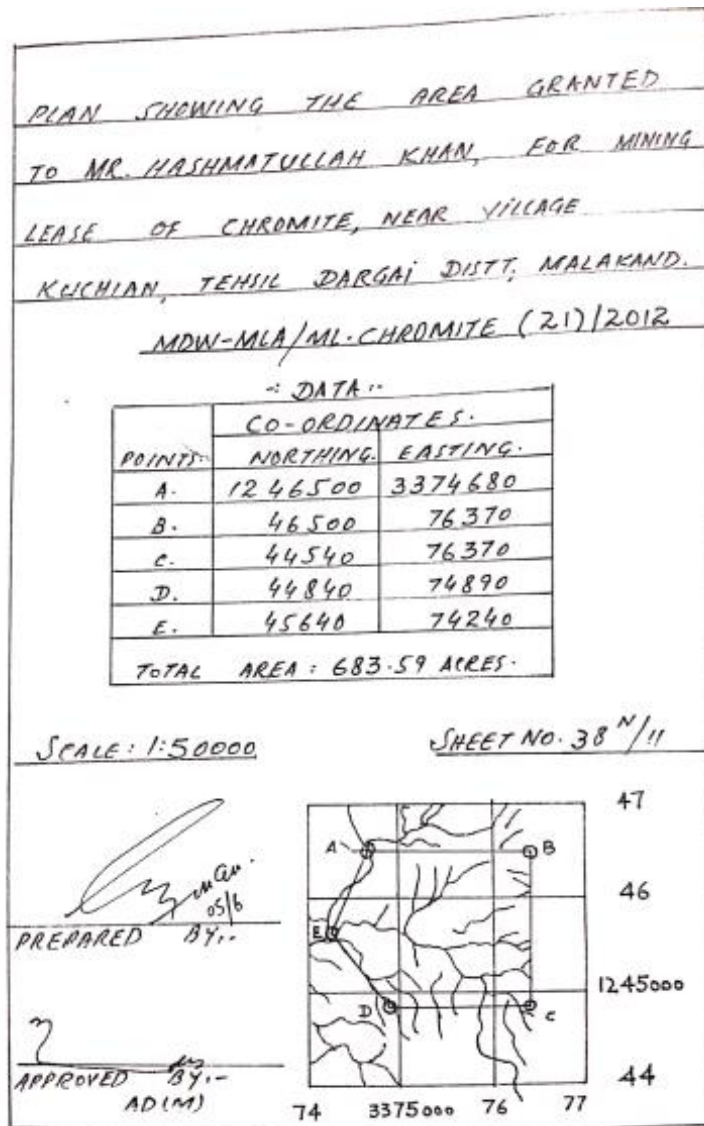 PLAN SHOWING THE AREA GRANTED
TO MR. HASHMATULLAH KHAN, FOR MINING
LEASE OF CHROMITE, NEAR VILLAGE
KUCHIAN, TEHSIL DARGAI DISTT, MALAKAND.
MDW-MLA/ML.CHROMITE (21)/2012
-: DATA :-
CO-ORDINATES.
POINTS. NORTHING. EASTING.
A. 1246500 3374680
B. 46500 76370
C. 44540 76370
D. 44840 74890
E. 45640 74240
TOTAL AREA : 683.59 ACRES.
SCALE: 1:50000 SHEET NO. 38 N/11
47
A B
46
05/6
PREPARED BY:-
E
1245000
D C
APPROVED BY:-
AD(M)
44
74 3375000 76 77